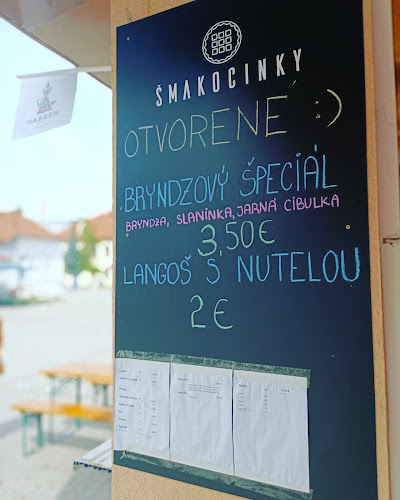 HABESH
ŠMAKOCINKY
OTVORENÉ :)
BRYNDZOVÝ ŠPECIÁL
BRYNDZA, SLANINKA, JARNÁ CIBUĽKA
3,50€
LANGOŠ S NUTELOU
2€